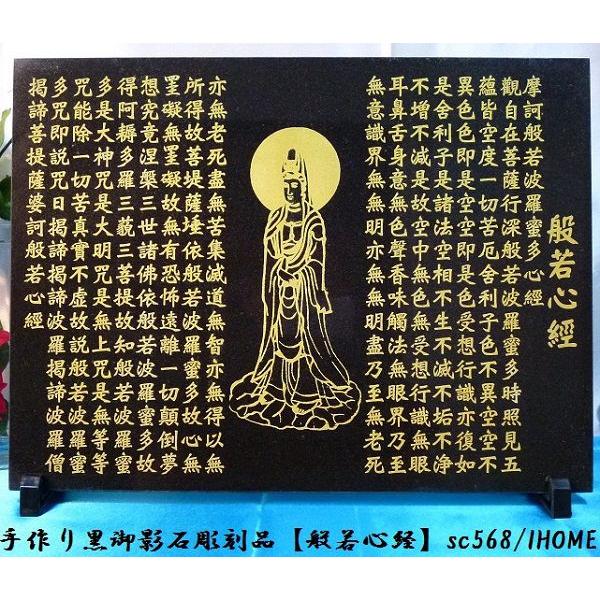 般若心經
摩訶般若波羅蜜多心經
觀自在菩薩行深般若波羅蜜多時照見五
蘊皆空度一切苦厄舍利子色不異空空不
異色色即是空空即是色受想行識亦復如
是舍利子是諸法空相不生不滅不垢不淨
不增不減是故空中無色無受想行識無眼
耳鼻舌身意無色聲香味觸法無眼界乃至
無意識界無無明亦無無明盡乃至無老死
亦無老死盡無苦集滅道無智亦無得以無
所得故菩提薩埵依般若波羅蜜多故心無
罣礙無罣礙故無有恐怖遠離一切顛倒夢
想究竟涅槃三世諸佛依般若波羅蜜多故
得阿耨多羅三藐三菩提故知般若波羅蜜
多是大神咒是大明咒是無上咒是無等等
咒能除一切苦真實不虛故說般若波羅蜜
多咒即說咒曰揭諦揭諦波羅揭諦波羅僧
揭諦菩提薩婆訶般若心經
手作り黒御影石彫刻品【般若心経】sc568/IHOME